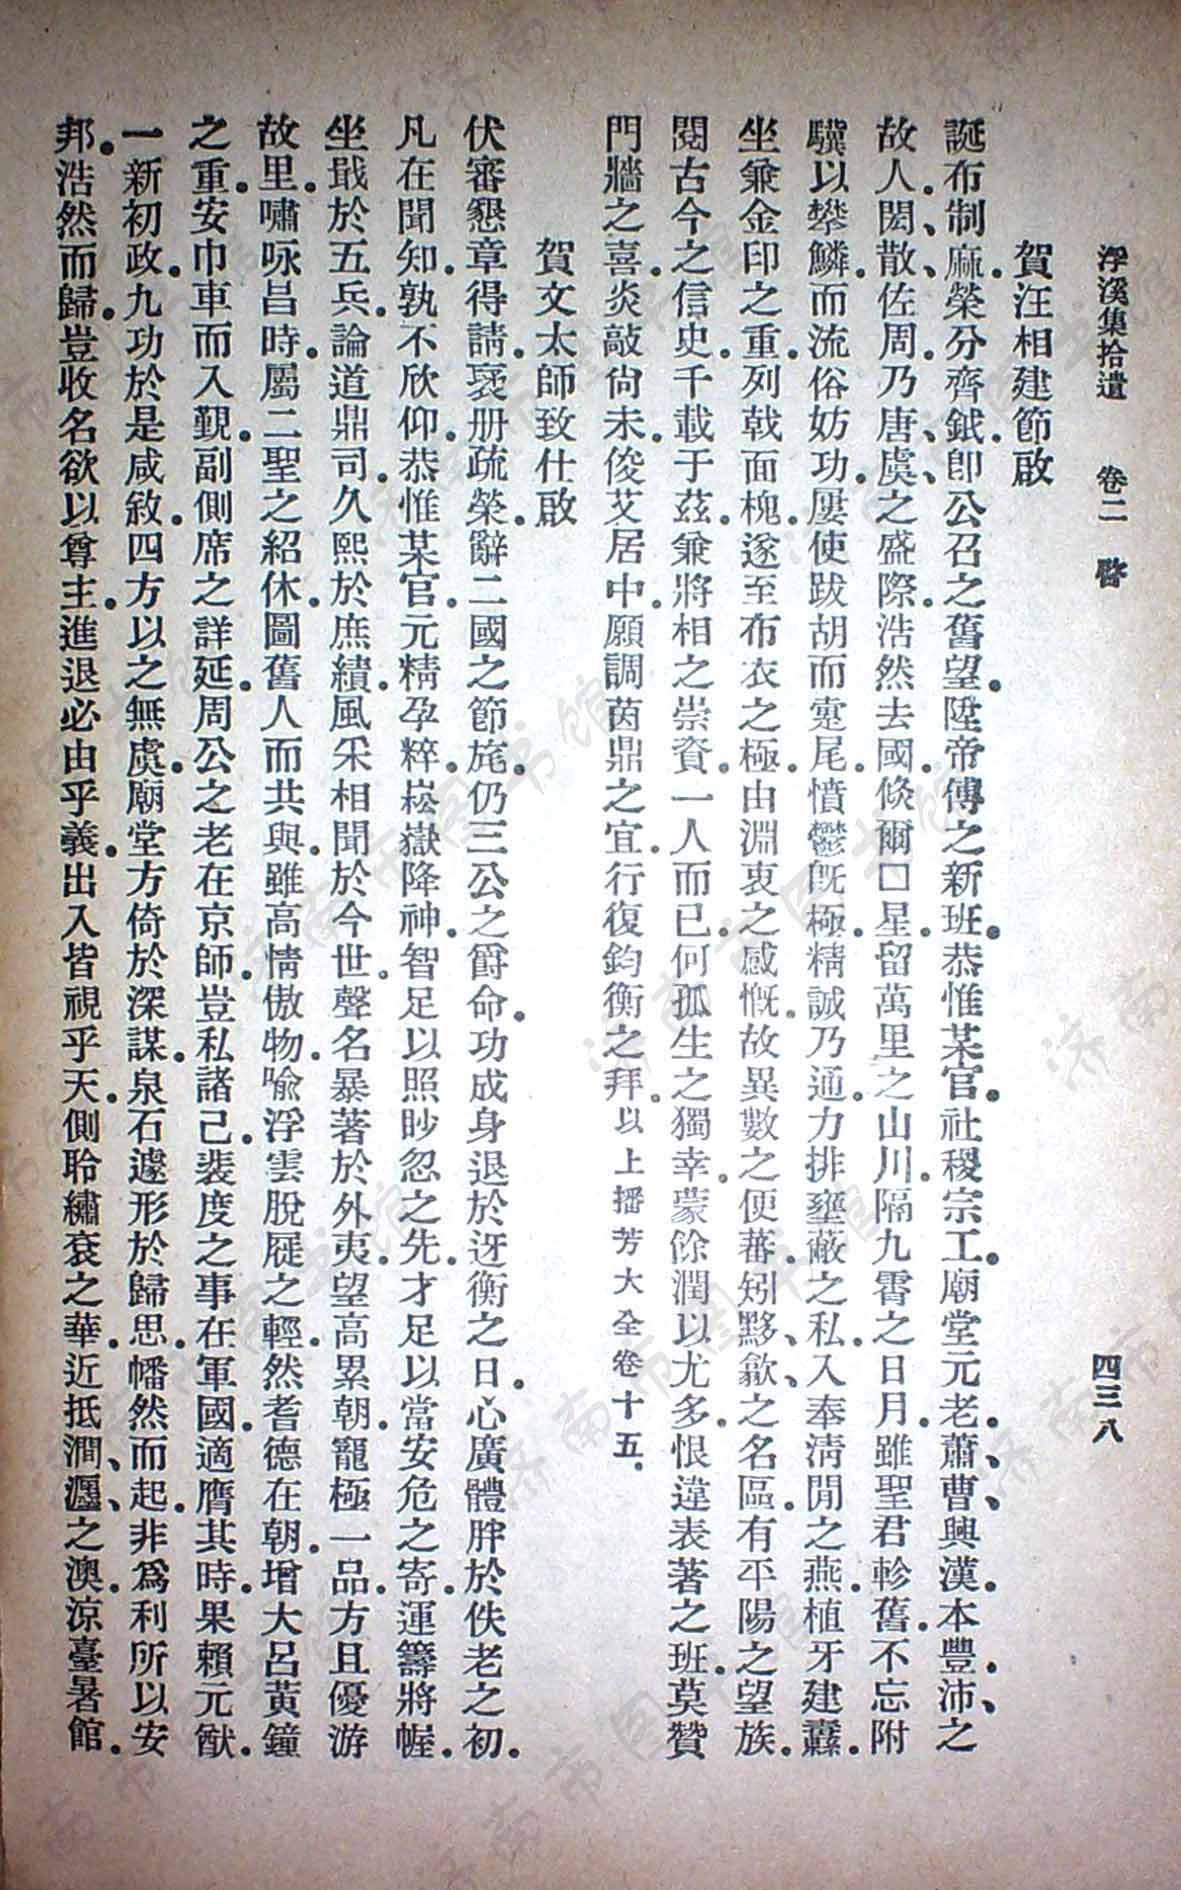 浮溪集拾遺　卷二　啓　四三八
賀汪相建節啟
誕布制麻。榮分齊鉞。卽公召之舊望。陞帝傅之新班。恭惟某官。社稷宗工。廟堂元老。蕭、曹興漢。本豐、沛之
故人。閎、散佐周。乃唐、虞之盛際。浩然去國。倐爾口星。留萬里之山川。隔九霄之日月。雖聖君軫舊。不忘附
驥以攀鱗。而流俗妨功。屢使跋胡而疐尾。憤鬱旣極。精誠乃通。力排壅蔽之私。入奉淸閒之燕。植牙建纛。
坐兼金印之重。列戟面槐。遂至布衣之極。由淵衷之感慨。故異數之便蕃。矧黟、歙之名區。有平陽之望族。
閱古今之信史。千載于茲。兼將相之崇資。一人而已。何孤生之獨幸。蒙餘潤以尤多。恨違表著之班。莫贊
門牆之喜。炎敲尙未。俊艾居中。願調茵鼎之宜。行復鈞衡之拜。以上播芳大全卷十五。
賀文太師致仕啟
伏審懇章得請。褒册疏榮。辭二國之節旄。仍三公之爵命。功成身退於迓衡之日。心廣體胖於佚老之初。
凡在聞知。孰不欣仰。恭惟某官。元精孕粹。崧嶽降神。智足以照眇忽之先。才足以當安危之寄。運籌將幄。
坐戢於五兵。論道鼎司。久熙於庶績。風采相聞於今世。聲名暴著於外夷。望高累朝。寵極一品。方且優游
故里。嘯咏昌時。屬二聖之紹休。圖舊人而共與。雖高情傲物。喻浮雲脫屣之輕。然耆德在朝。增大呂黃鐘
之重。安巾車而入覲。副側席之詳延。周公之老在京師。豈私諸己。裴度之事在軍國。適膺其時。果賴元猷。
一新初政。九功於是咸敘。四方以之無虞。廟堂方倚於深謀。泉石遽形於歸思。幡然而起。非爲利所以安
邦。浩然而歸。豈收名欲以尊主。進退必由乎義。出入皆視乎天。側聆繡袞之華。近抵澗、瀍之澳。涼臺暑館。